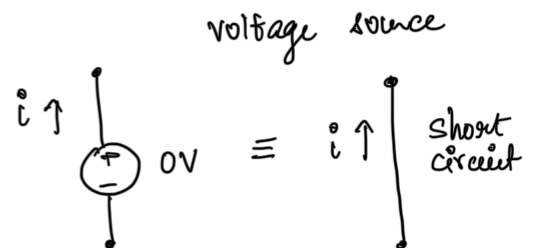 voltage source
i ↑ + − 0V ≡ i ↑ short
circuit